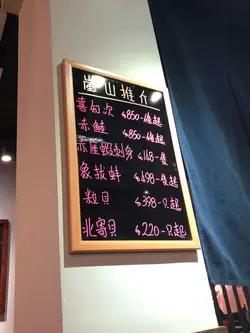 嵐山推介
喜知次 $850-1條起
赤鯥 $850-1條起
赤座蝦刺身 $148-1隻
象拔蚌 $498-1隻起
粒貝 $398-1只起
北寄貝 $220-1只起